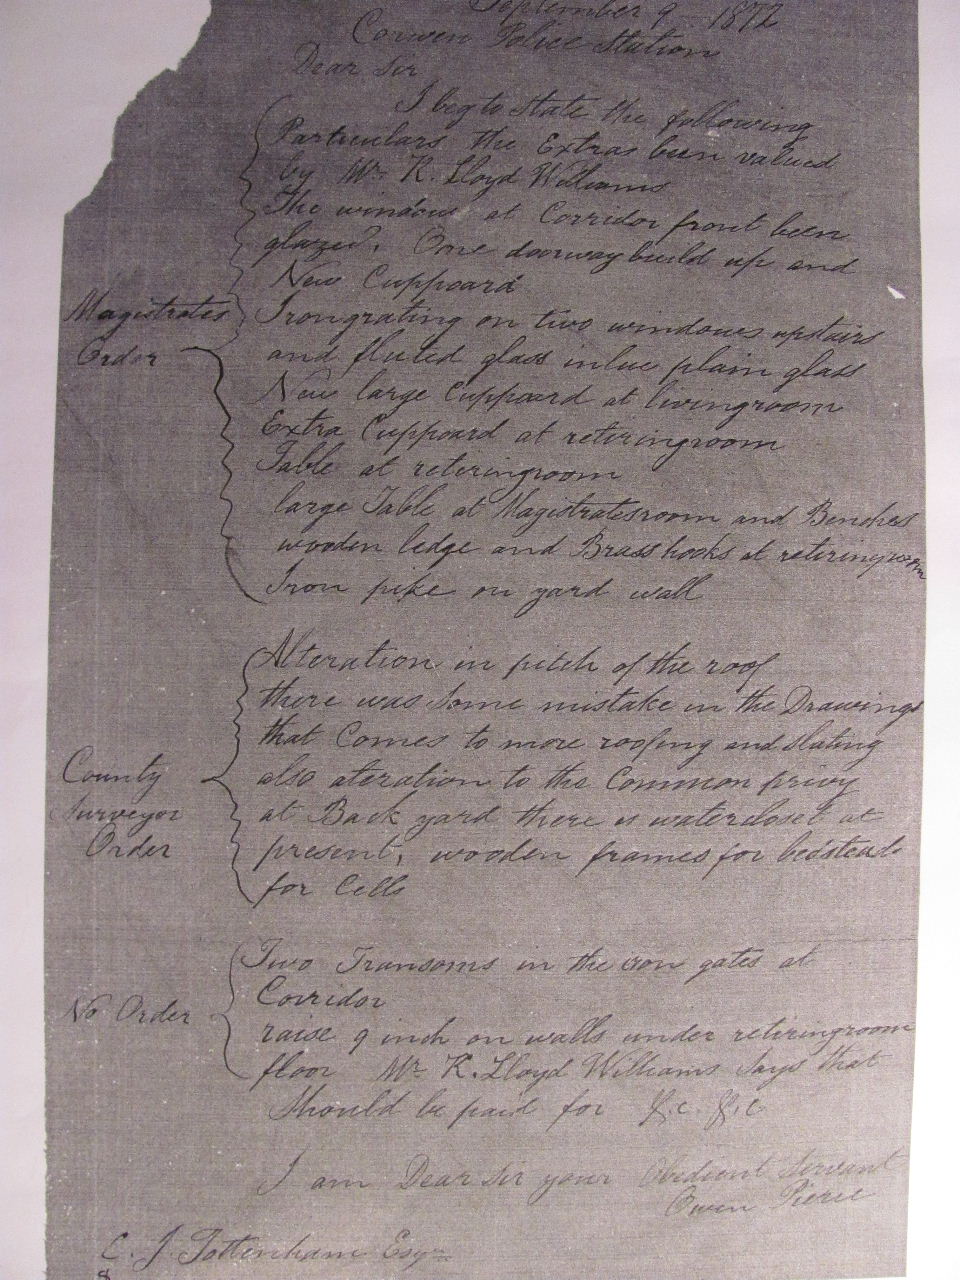 September 9 1872
Corwen Police Station
Dear Sir
I beg to state the following
Particulars the Extras been valued
by Mr K. Lloyd Williams
The windows at Corridor front been
glazed, One doorway build up and
New Cuppoard
Magistrates Order
Irongrating on two windows upstairs
and fluted glass inlue plain glass
New large Cuppoard at livingroom
Extra Cuppoard at retiringroom
Table at retiringroom
large Table at Magistratesroom and Benches
wooden ledge and Brass hooks at retiringroom
Iron pike on yard wall
Alteration in pitch of the roof
there was some mistake in the Drawings
that Comes to more roofing and slating
County Surveyor Order
also ateration to the Common privy
at Back yard there is watercloset at
present, wooden frames for bedsteads
for Cells
Two Transoms in the iron gates at
Corridor
No Order
raise 9 inch on walls under retiringroom
floor Mr K. Lloyd Williams says that
should be paid for &.c. &.c
I am Dear Sir your Obedient Servant
Owen Pierce
C. J. Tottenham Esqr